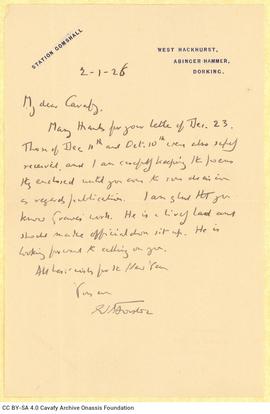 STATION GOMSHALL
WEST HACKHURST,
ABINGER HAMMER,
DORKING.
2-1-26
My dear Cavafy,
Many thanks for your letter of Dec. 23.
Those of Dec 11th and Oct. 10th were also safely
received, and I am carefully keeping the poems
they enclosed until you come to some decision
as regards publication. I am glad that you
know Graves' work. He is a lively lad and
should make officialdom sit up. He is
looking forward to calling on you.
All best wishes for the New Year
Yours ever
EMForster
CC BY-SA 4.0 Cavafy Archive Onassis Foundation